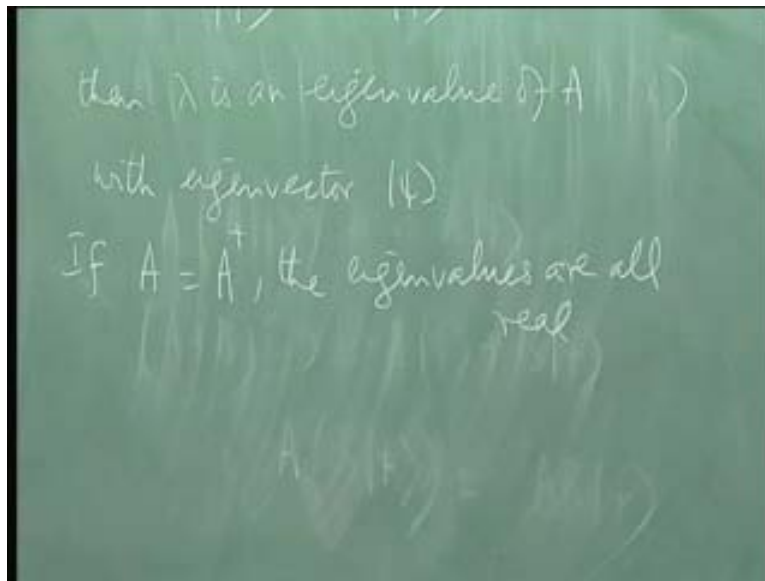 then λ is an eigenvalue of A
with eigenvector |ψ⟩
If A = A†, the eigenvalues are all
real